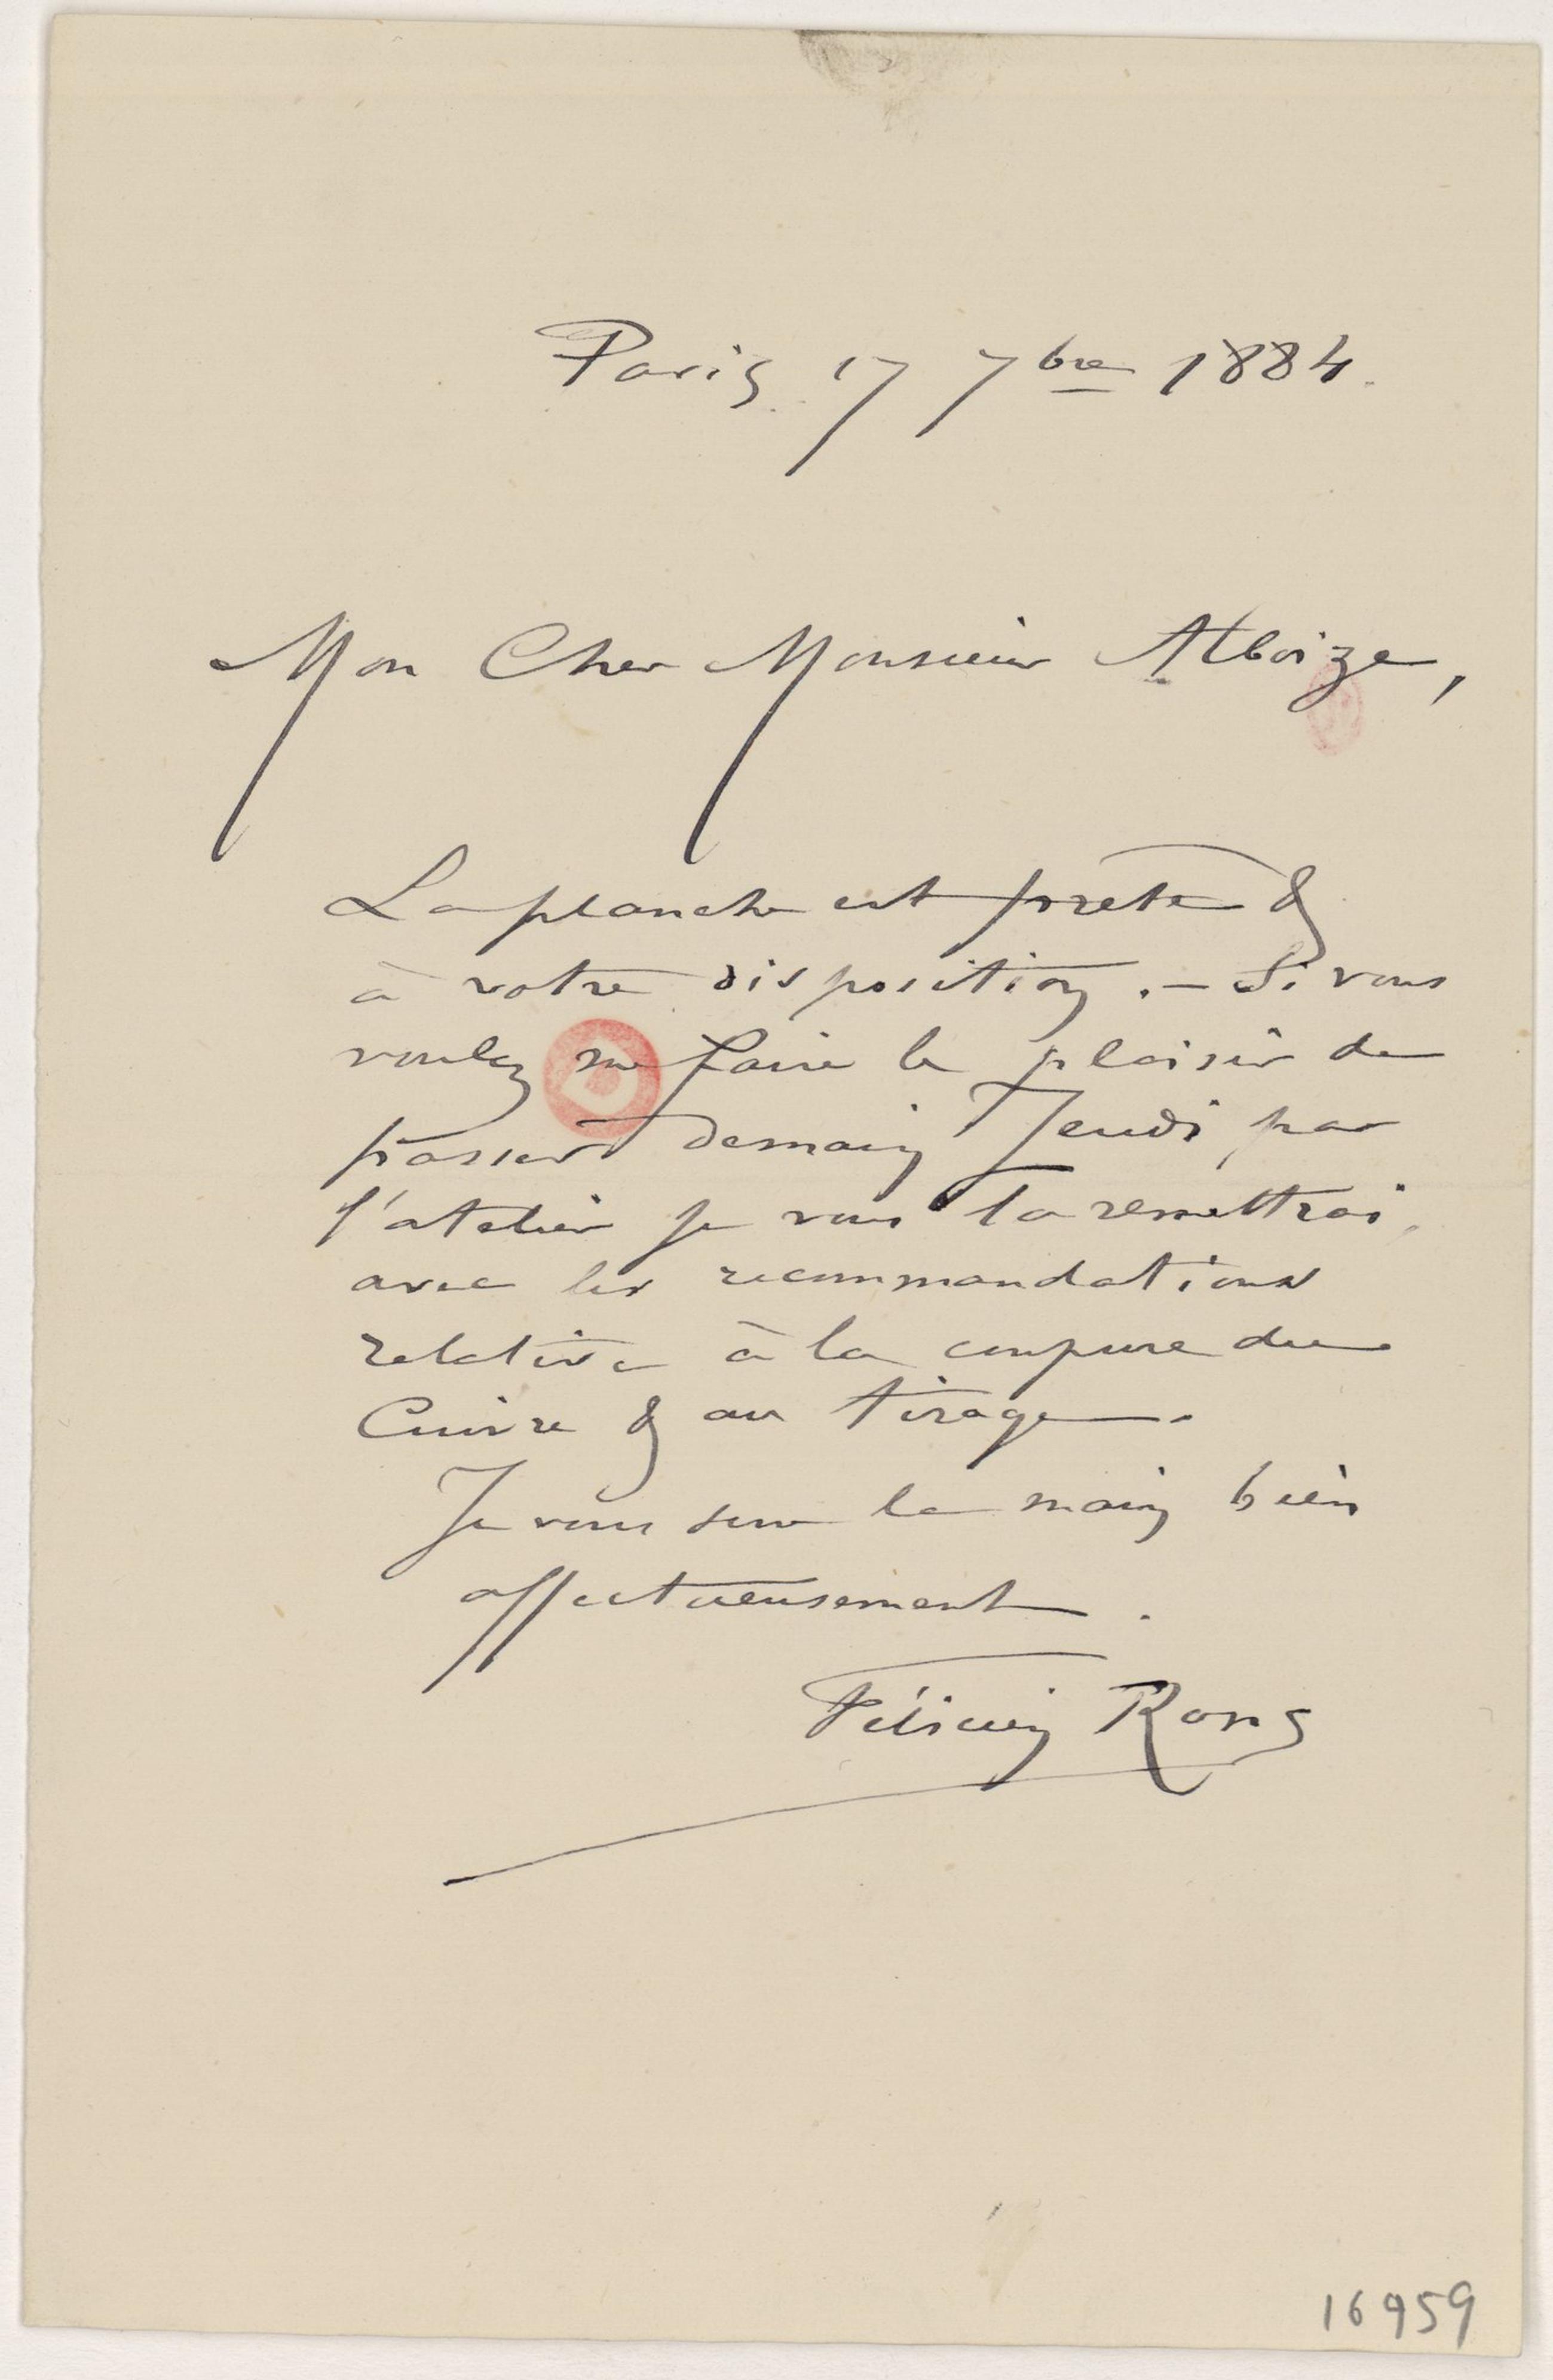 Paris 17 7bre 1884.
Mon Cher Monsieur Alboize,
La planche est prete &
à votre disposition . — Si vous
voulez me faire le plaisir de
passer demain Jeudi par
l'atelier je vous la remettrai,
avec les recommandations
relative à la coupure du
Cuivre & au tirage.
Je vous serre la main bien
affectueusement .
Félicien Rops
16959